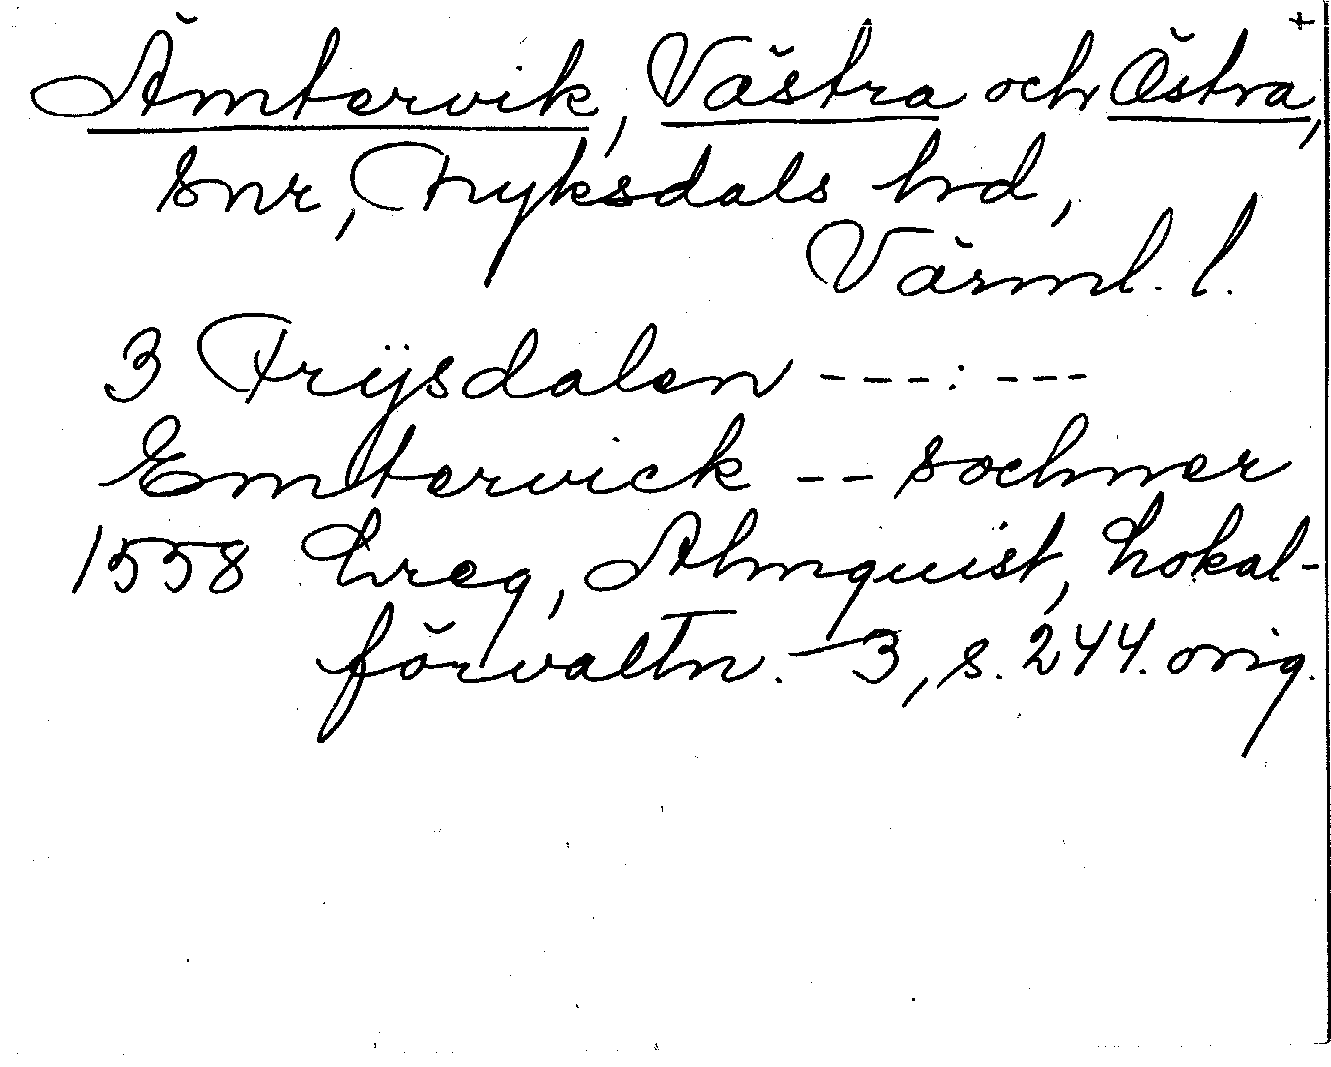 Ämtervik, Västra och Östra,
snr, Fryksdals hrd,
Värml. l.
3 Frÿsdalen ---:---
Emtervick -- sochner
1558 hreg, Almquist, Lokal-
förvaltn. 3, s. 244. orig.